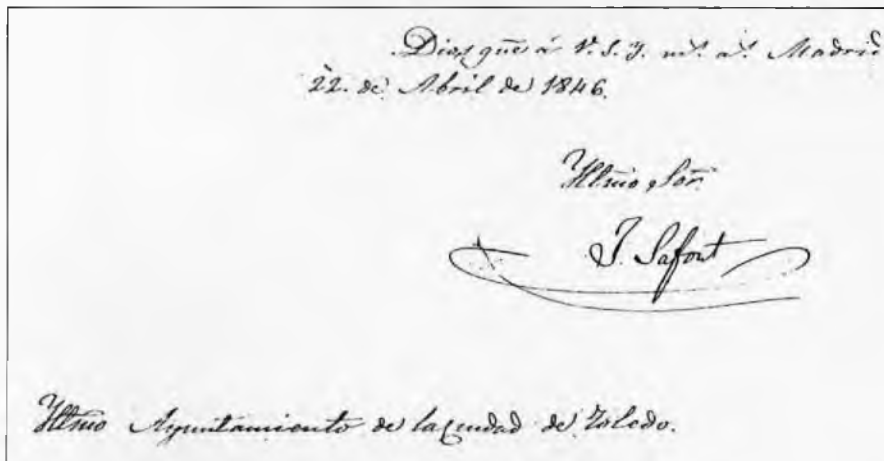 Dios gũe á V. S. Y. m.ˢ a.ˢ Madrid
22. de Abril de 1846.
Yltmo Sor.
J. Safont
Yltmo Ayuntamiento de la Ciudad de Toledo.